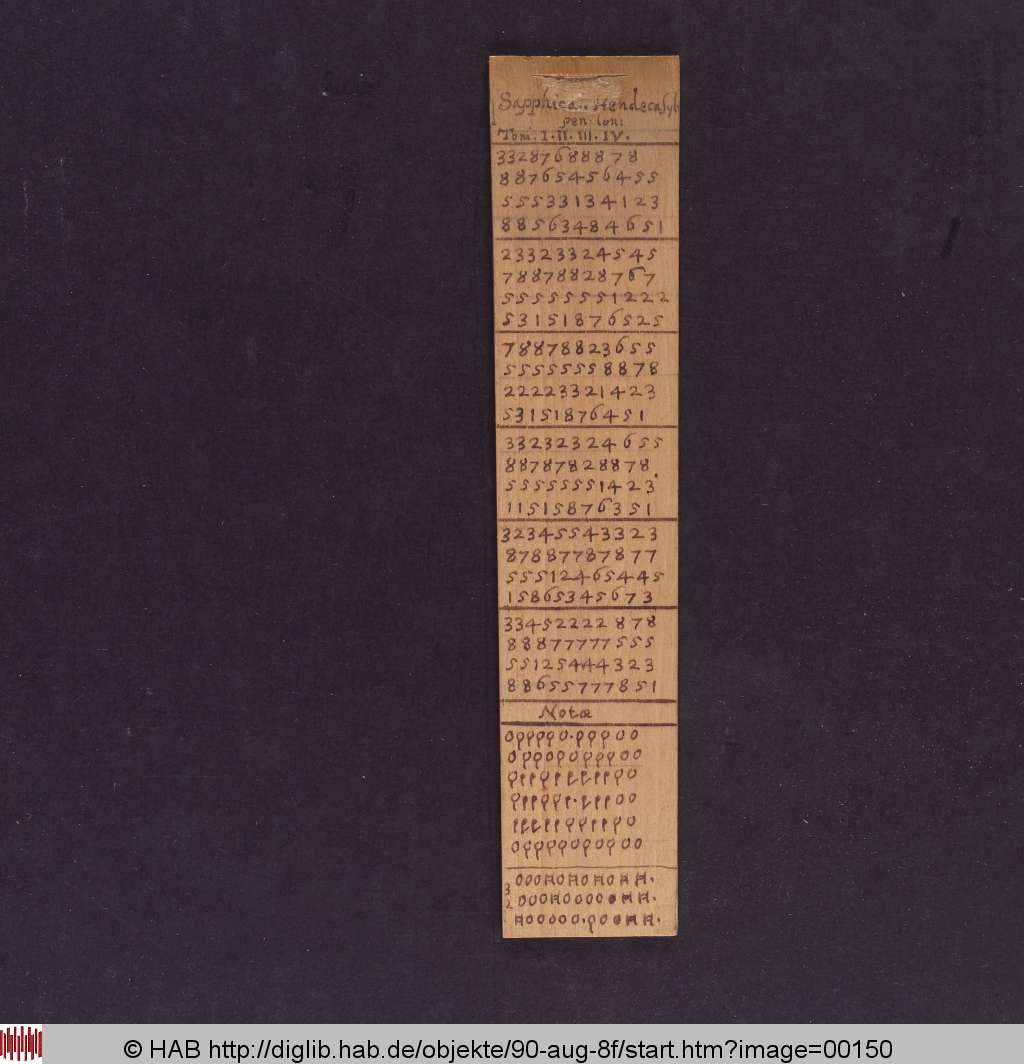 Sapphica. Hendecasyl
pen: lon:
Toni. I. II. III. IV.
33287688878
88765456455
55533134123
88563484651
23323324545
78878828767
55555551222
53151876525
78878823655
55555558878
22223321423
53151876451
33232324655
88787828878
55555551423
11515876351
32345543323
87887787877
55512465445
15865345673
33452222878
88877777555
55125444323
88655777851
Notæ
3
2
© HAB http://diglib.hab.de/objekte/90-aug-8f/start.htm?image=00150